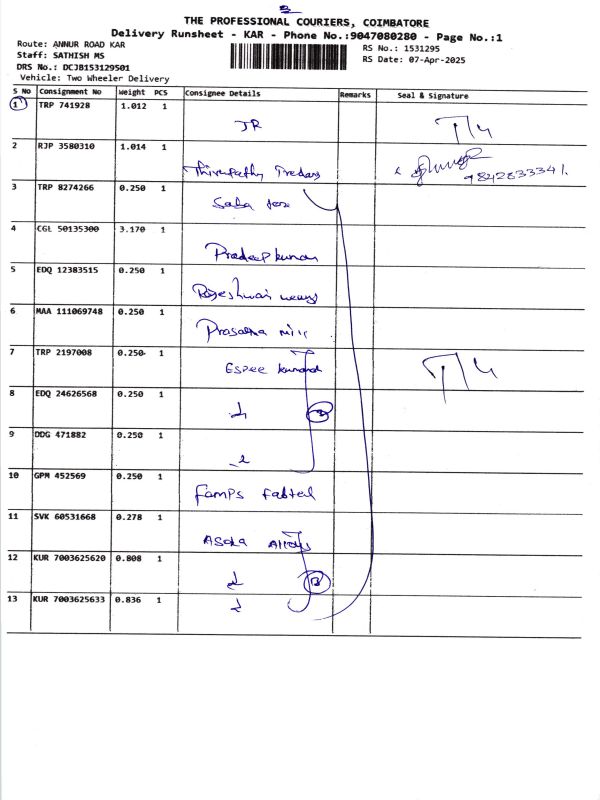 THE PROFESSIONAL COURIERS, COIMBATORE
Delivery Runsheet - KAR - Phone No.:9047080280 - Page No.:1
Route: ANNUR ROAD KAR
RS No.: 1531295
Staff: SATHISH MS
RS Date: 07-Apr-2025
DRS No.: DCJB153129501
Vehicle: Two Wheeler Delivery
S No Consignment No Weight PCS Consignee Details Remarks Seal & Signature
1 TRP 741928 1.012 1
JR
2 RJP 3580310 1.014 1
Thirupathy Traders
9842833341.
3 TRP 8274266 0.250 1
4 CGL 50135300 3.170 1
Pradeep kumar
5 EDQ 12383515 0.250 1
6 MAA 111069748 0.250 1
Prasanna mill
7 TRP 2197008 0.250 1
8 EDQ 24626568 0.250 1
3
9 DDG 471882 0.250 1
10 GPM 452569 0.250 1
11 SVK 60531668 0.278 1
Alloys
12 KUR 7003625620 0.808 1
3
13 KUR 7003625633 0.836 1